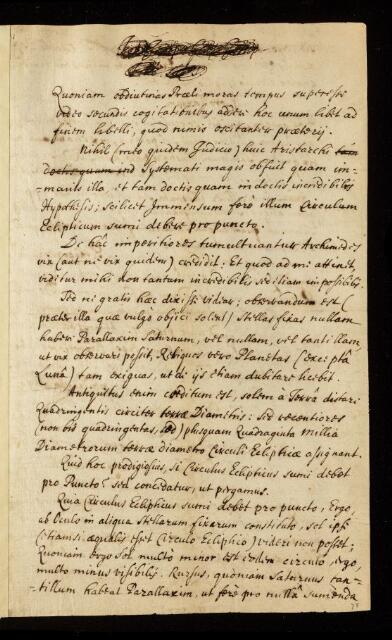 Quoniam ob diutinas Præli moras tempus superesse
video secundis cogitationibus addere hoc unum libet ad
finem libelli, quod nimis oscitanter præterij.
Nihil (meo quidem Judicio) huic Aristarchi tam
doctis quam ind Systemati magis obfuit quam im-
-manis illa, et tam doctis quam indoctis incredibilis
Hypothesis; scilicet Immensum fere illum Circulum
Eclipticum sumi debere pro puncto.
De hâc imperitiores tumultuantur Archimedes
vix (aut ne vix quidem) credidit. Et quod ad me attinet
videtur mihi non tantum incredibilis sed etiam impossibilis.
Sed ne gratis hæc dixisse videar; observandum est
(præter illa quæ vulgo objici solent) Stellas fixas nullam
habere Parallaxim Saturnum, vel nullam, vel tantillam
ut vix observari possit, Reliquos vero Planetas (exceptâ
Lunâ) tam exiguas, ut de ijs etiam dubitare licebit.
Antiquitus enim creditum est, solem a Terra distare
Quadringentis circiter terræ Diametris: sed recentiores
(non bis quadringentas, sed) plusquam Quadraginta Millia
Diametrorum terræ diametro Circuli Eclipticæ assignant.
Quid hoc prodigiosius, si Circulus Eclipticus sumi debet
pro Puncto? sed concedatur, ut pergamus.
Quia Circulus Eclipticus sumi debet pro puncto, Ergo,
ab oculo in aliqua stellarum fixarum constituto, Sol ipse
(etiamsi æqualis esset Circulo Ecliptico) videri non posset;
Quoniam ergo Sol multo minor est eodem circulo, ergo,
multo minus visibilis. Rursus, quoniam Saturnus tan-
-tillum habeat Parallaxim, ut fere pro nullâ sumenda